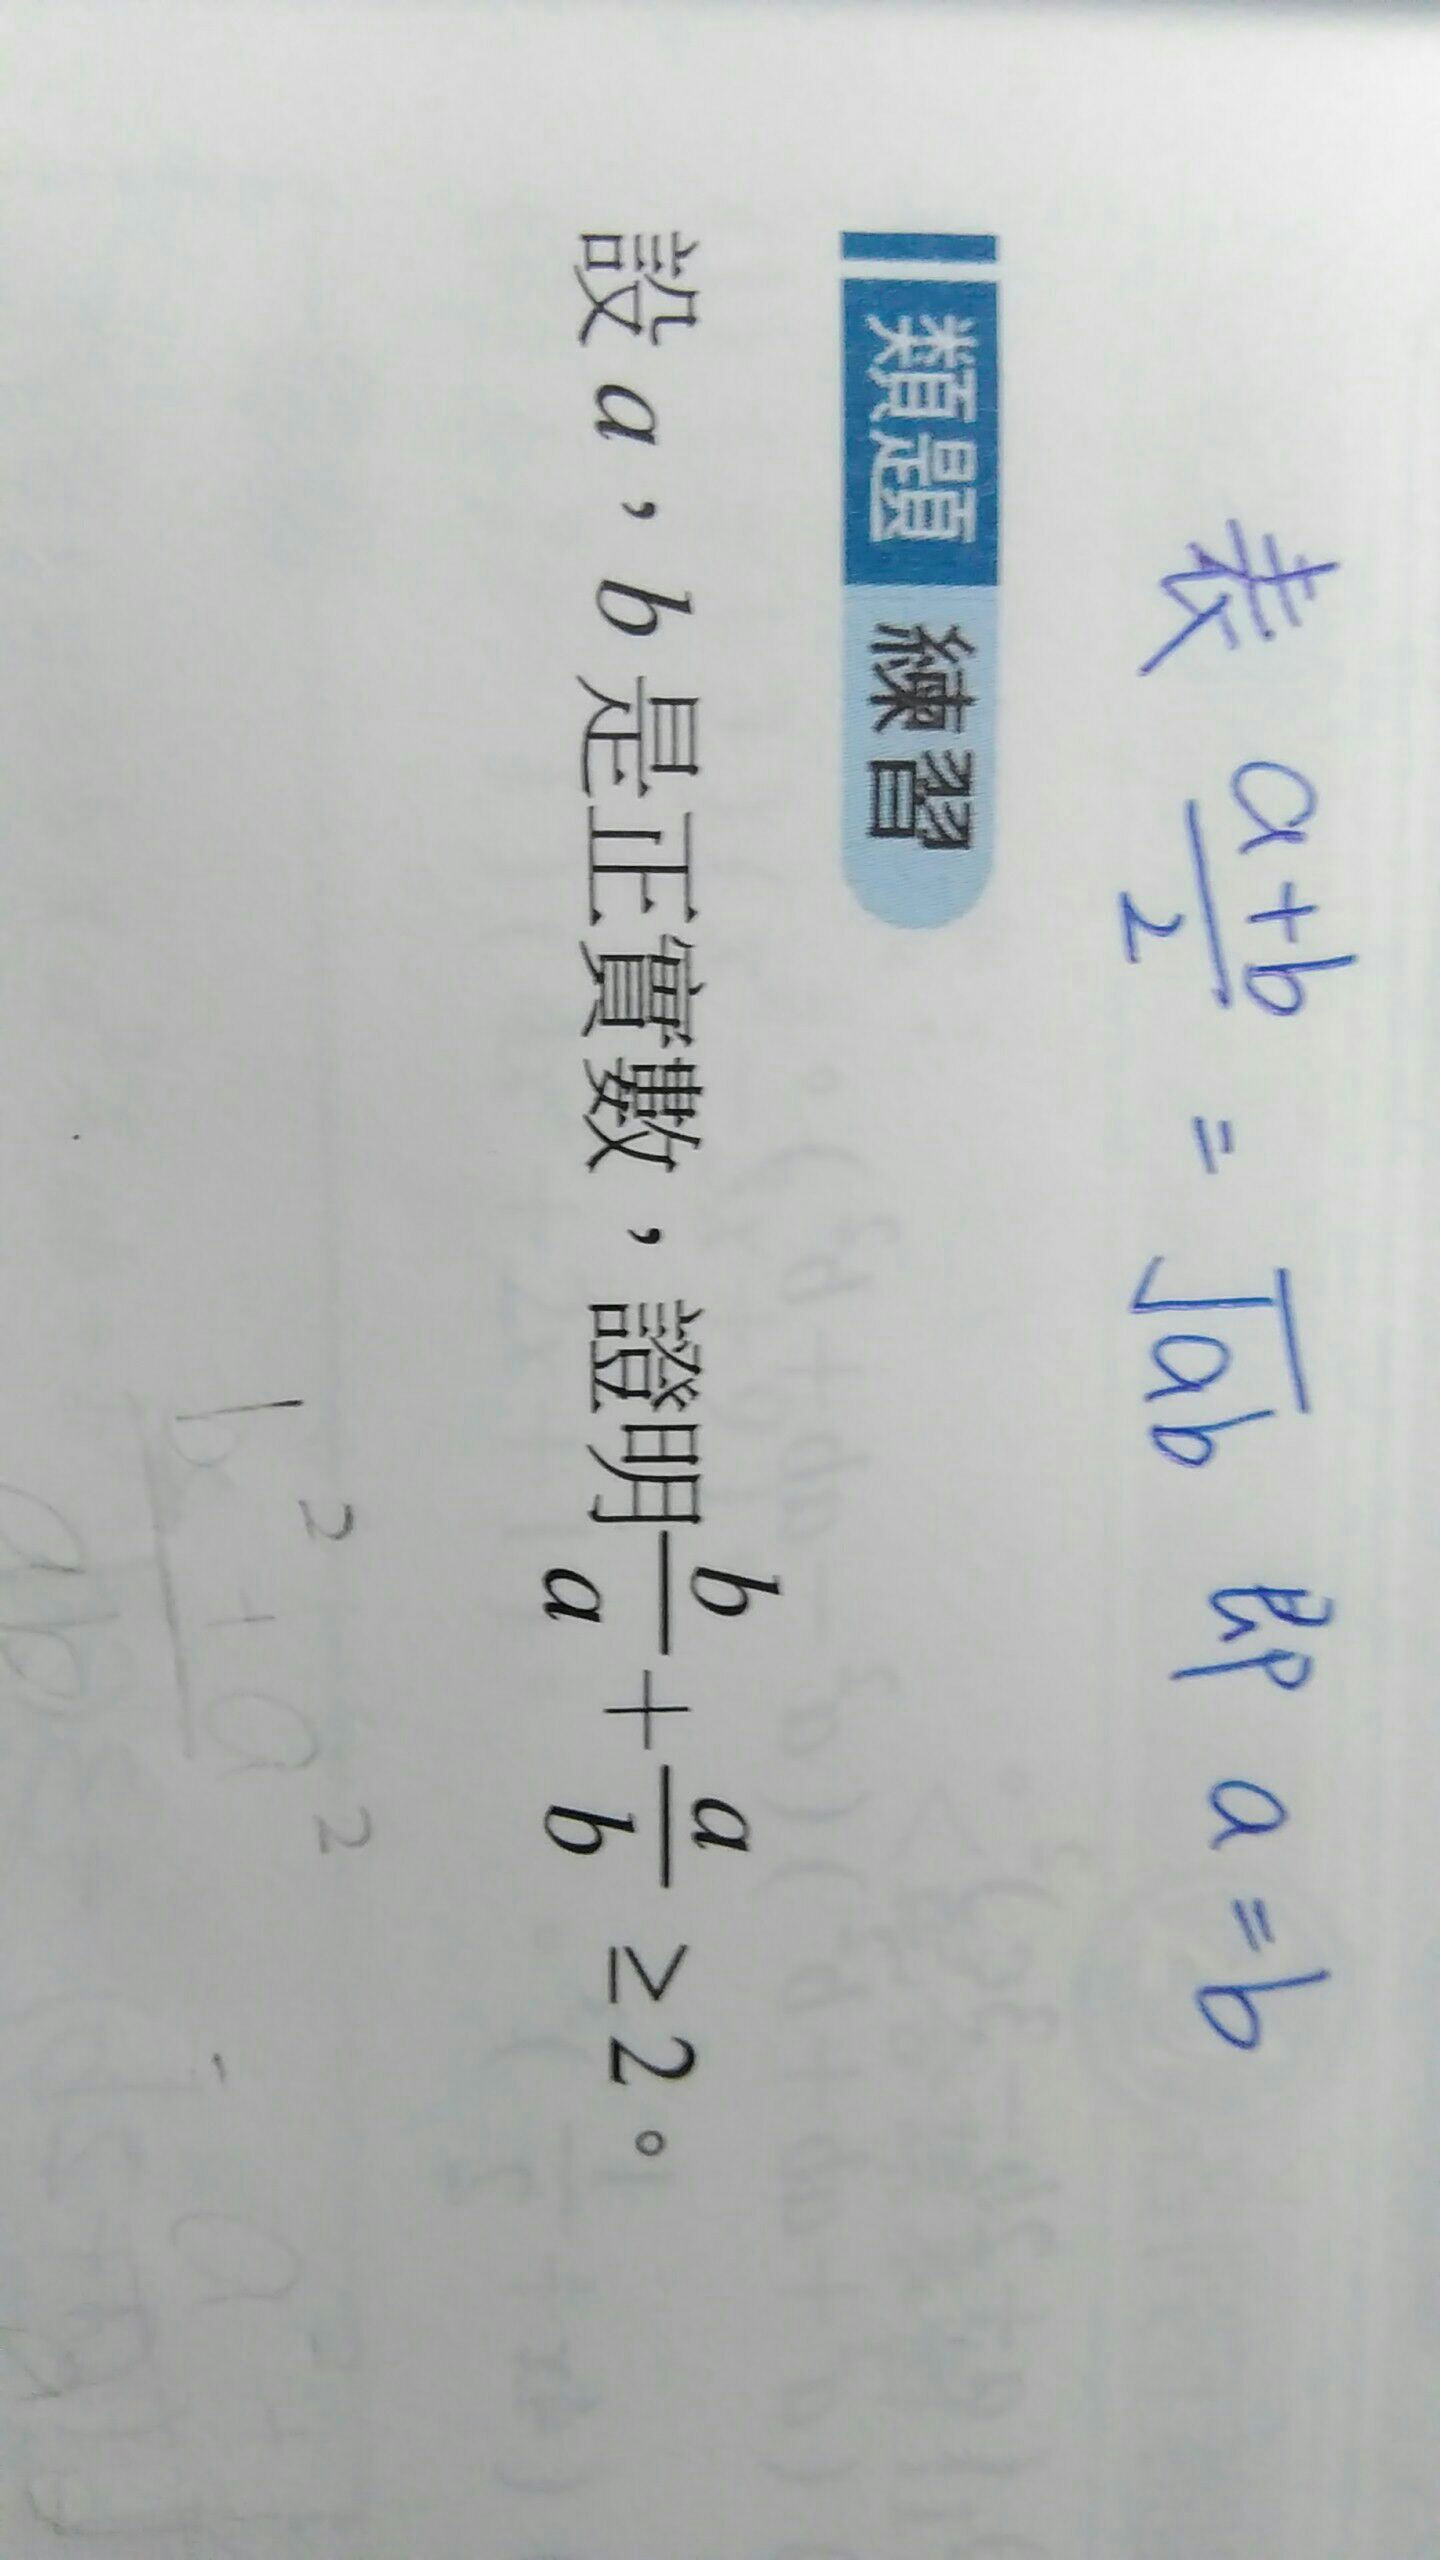 表 a+b/2 = √ab 即 a=b
類題 練習
設 a，b 是正實數，證明 b/a + a/b ≥ 2。
b² + a²
ab